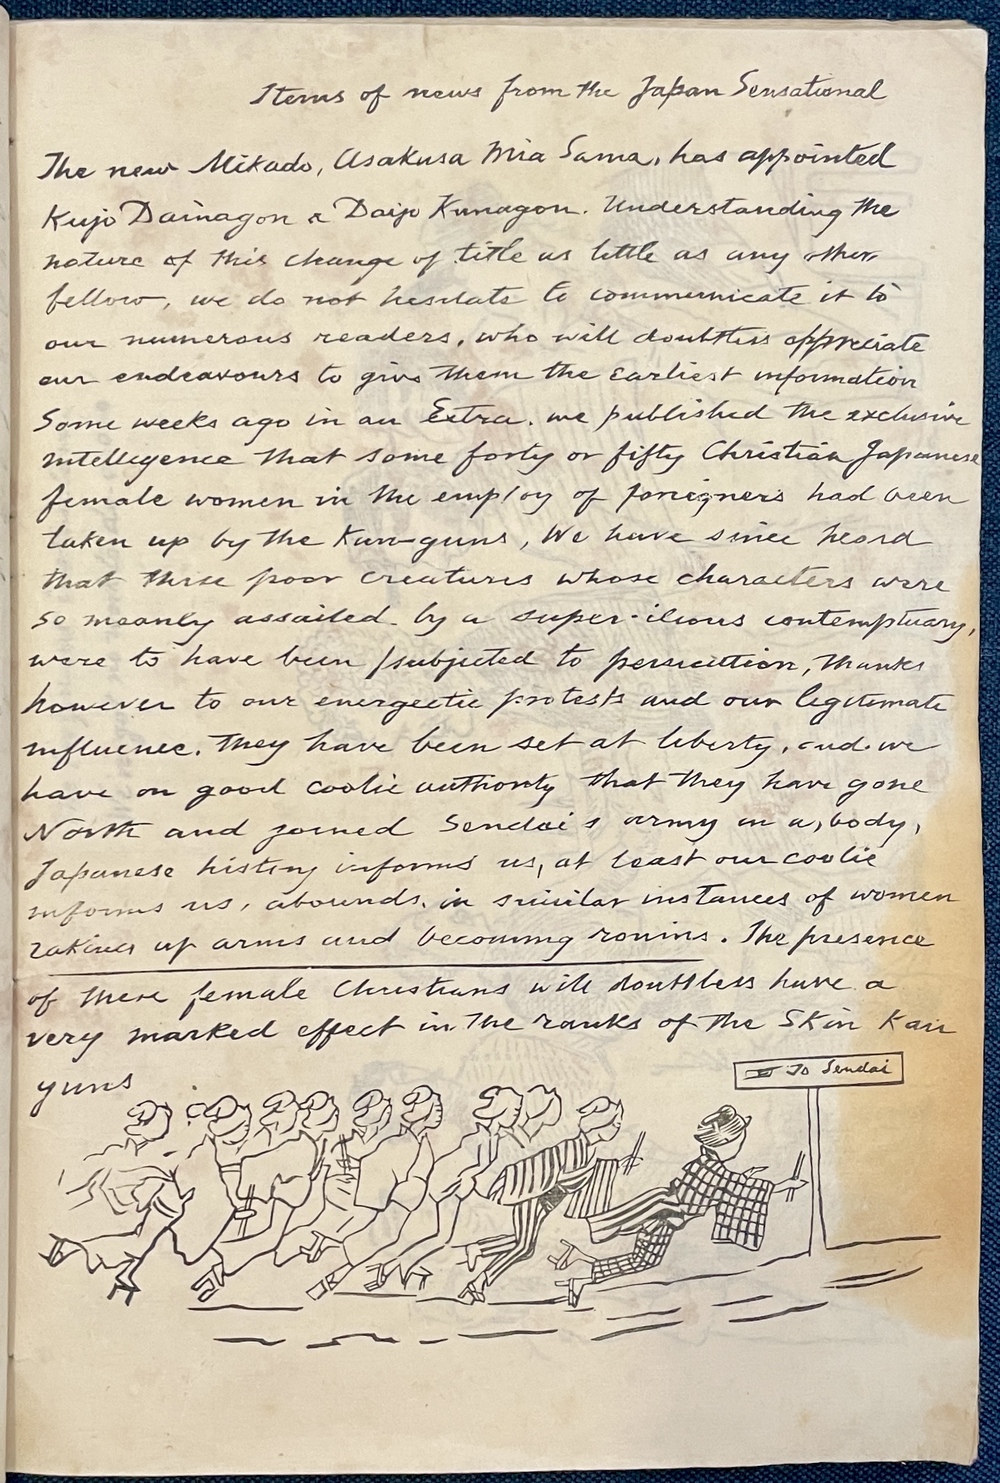 Items of news from the Japan Sensational
The new Mikado, Asakusa Mia Sama, has appointed
Kujo Dainagon a Daijo Kunagon. Understanding the
nature of this change of title as little as any other
fellow, we do not hesitate to communicate it to
our numerous readers, who will doubtless appreciate
our endeavours to give them the Earliest information
Some weeks ago in an Extra. we published the exclusive
intellegence that some forty or fifty Christian Japanese
female women in the employ of foreigners had been
taken up by the Kan-guns, We have since heard
that these poor creatures whose characters were
so meanly assailed by a super-ilious contemptuary,
were to have been subjected to persecution, thanks
however to our energeetic protests and our legitimate
influence. They have been set at liberty, and we
have on good coolie authority that they have gone
North and joined Sendai's army in a body,
Japanese history informs us, at least our coolie
informs us, abounds in similar instances of women
taking up arms and becoming ronins. The presence
of these female Christians will doubtless have a
very marked effect in the ranks of the Skin Kan
guns
To Sendai